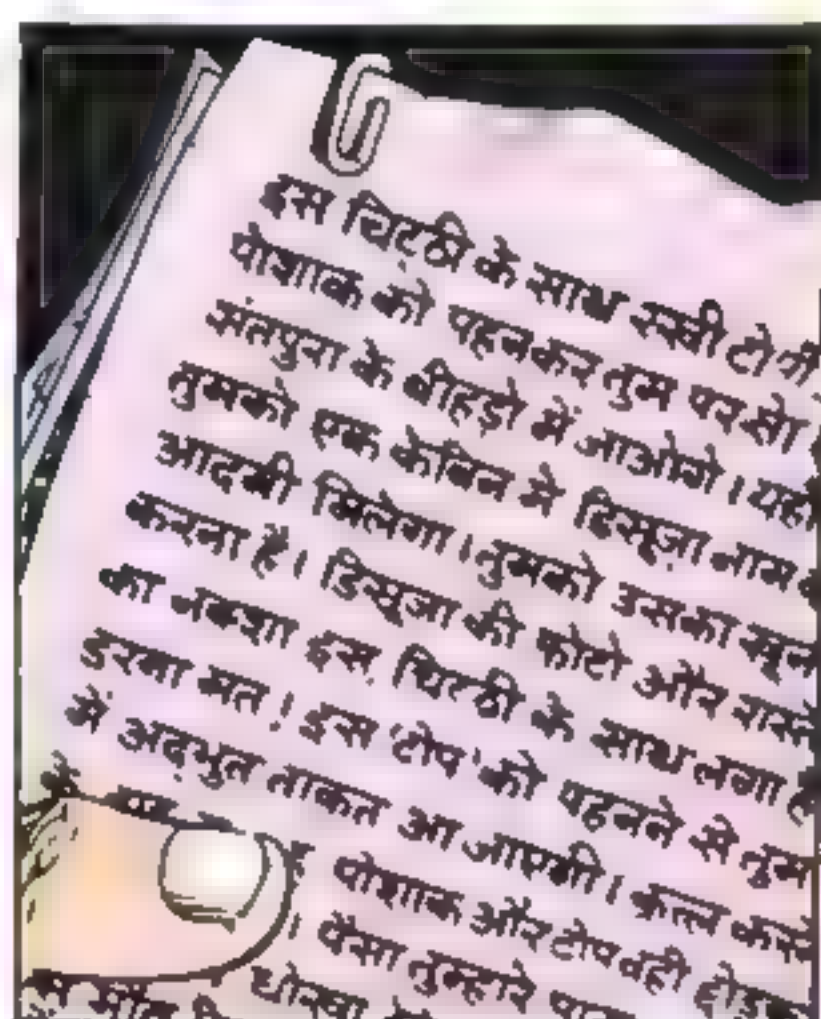 इस चिट्ठी के साथ रखी
पोशाक को पहनकर तुम परसों
संतपुरा के बीहड़ो में आओगे। यहां
तुमको एक केबिन मे डिसूज़ा नाम
आदमी मिलेगा। तुमको उसका खून
करना है। डिसूजा की फोटो और
का नक्शा इस चिट्ठी के साथ लगा
डरना मत! इस 'टोप' को पहनने से तुम
में अद्भुत ताकत आ जाएगी। कत्ल
के पोशाक और टोप वहीं
पैसा तुम्हारे
धोखा